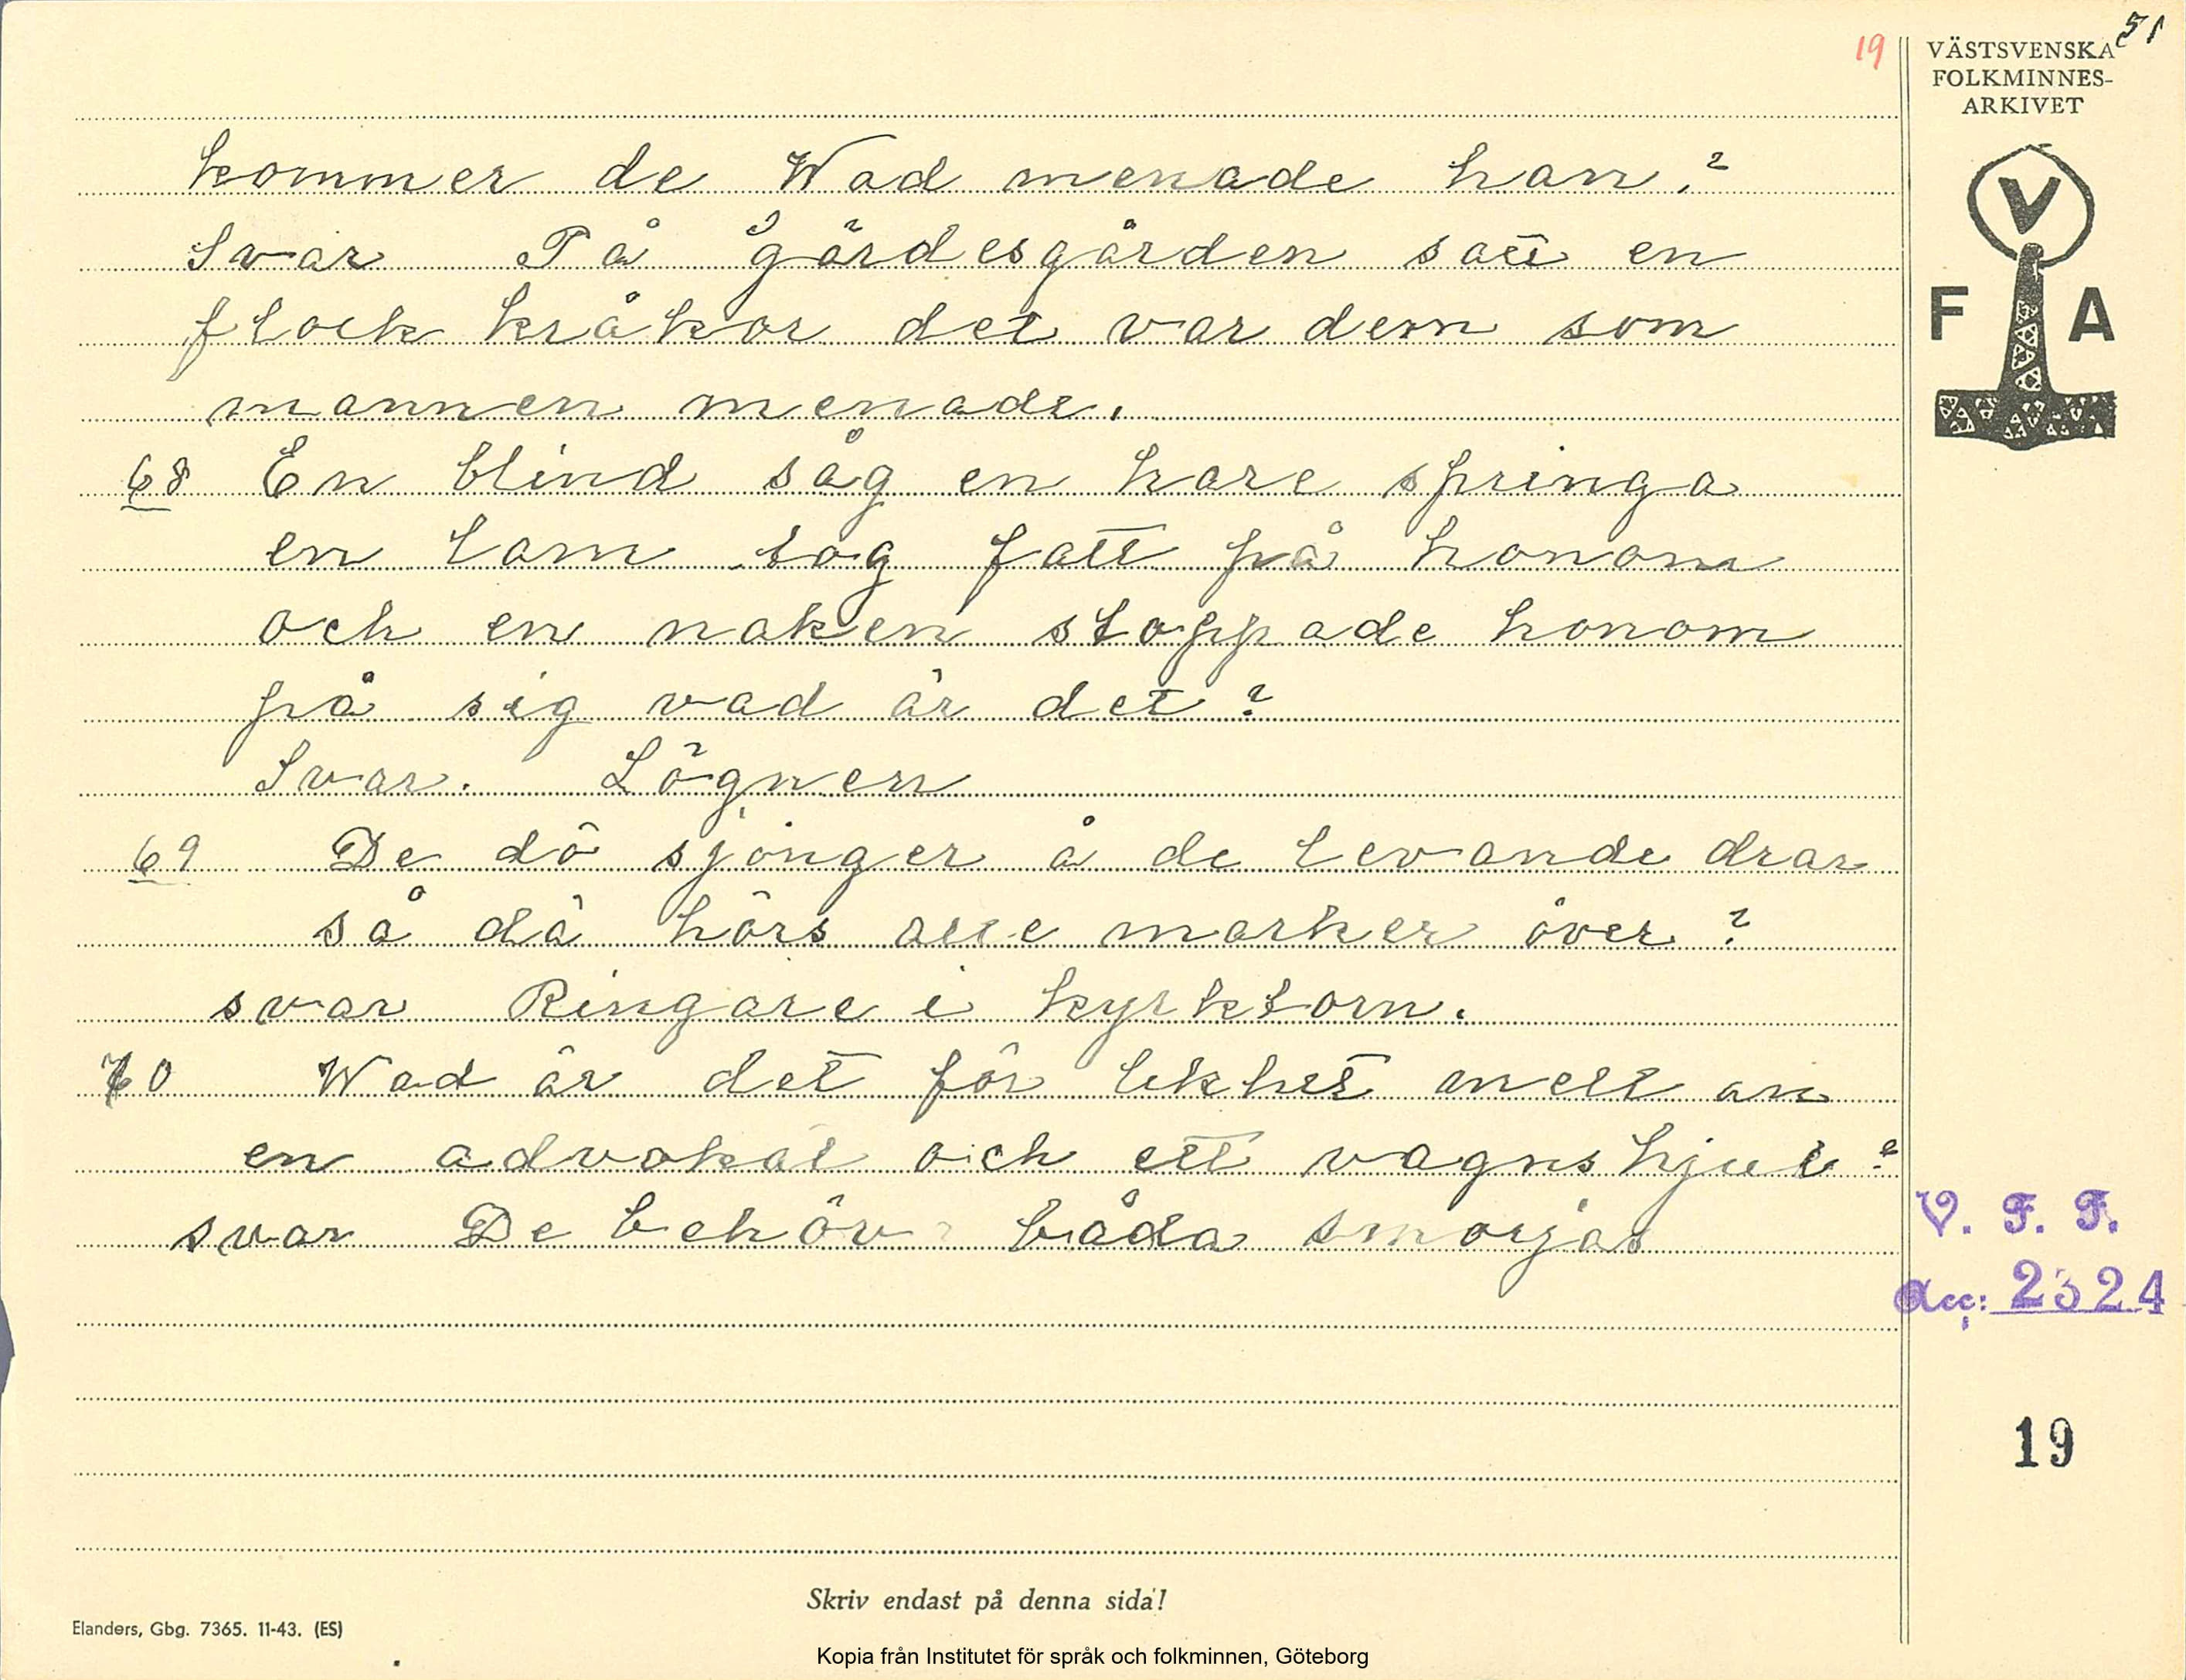 19
51
VÄSTSVENSKA
FOLKMINNES-
ARKIVET
V
F A
kommer de Wad menade han?
Svar På gärdesgården satt en
flock kråkor det var dem som
mannen menade.
68 En blind såg en hare springa
en lam tog fatt på honom
och en naken stoppade honom
på sig vad är det?
Svar. Lögnen
69 De dö sjönger å de levande drar
så dä hörs alle marker över?
svar Ringare i kyrktorn.
70 Wad är det för likhet mell an
en advokat och ett vagnshjul?
svar De behöv båda smörjas
V. F. F.
Acc: 2324
19
Skriv endast på denna sida!
Elanders, Gbg. 7365. 11-43. (ES)
Kopia från Institutet för språk och folkminnen, Göteborg